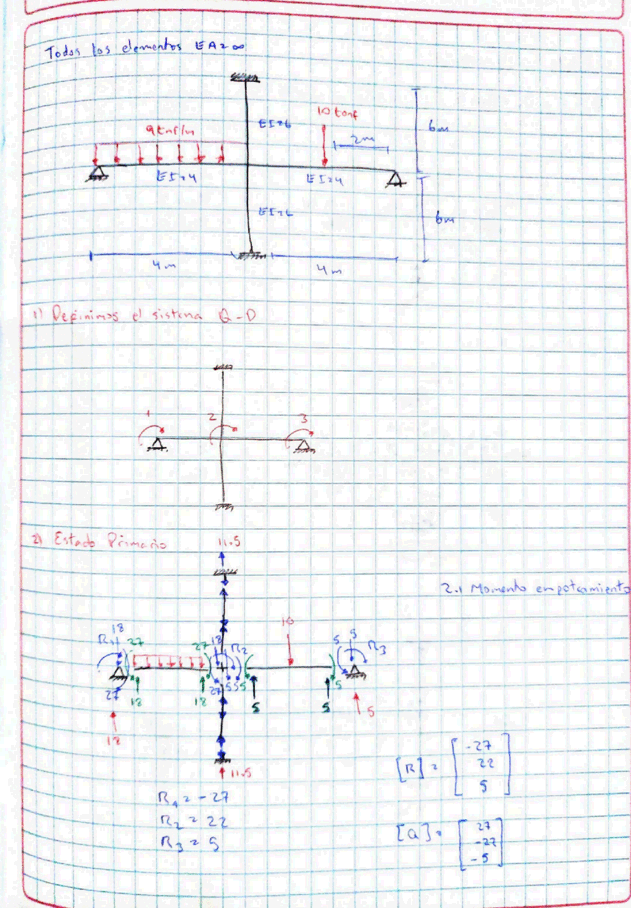 Todos los elementos EA=∞
EI=6
10 tonf
6m
9 tnf/m
2m
EI=4
EI=4
EI=6
6m
4m
4m
1) Definimos el sistema Q-D
1
2
3
2) Estado Primario
11.5
2.1 Momento empotramiento
18
R1
27
27
18
R2
10
5
5
R3
27
27
5
5
5
5
18
18
5
5
5
18
11.5
R1 = -27
R2 = 22
R3 = 5
[R] = [-27
22
5]
[Q] = [27
-22
-5]